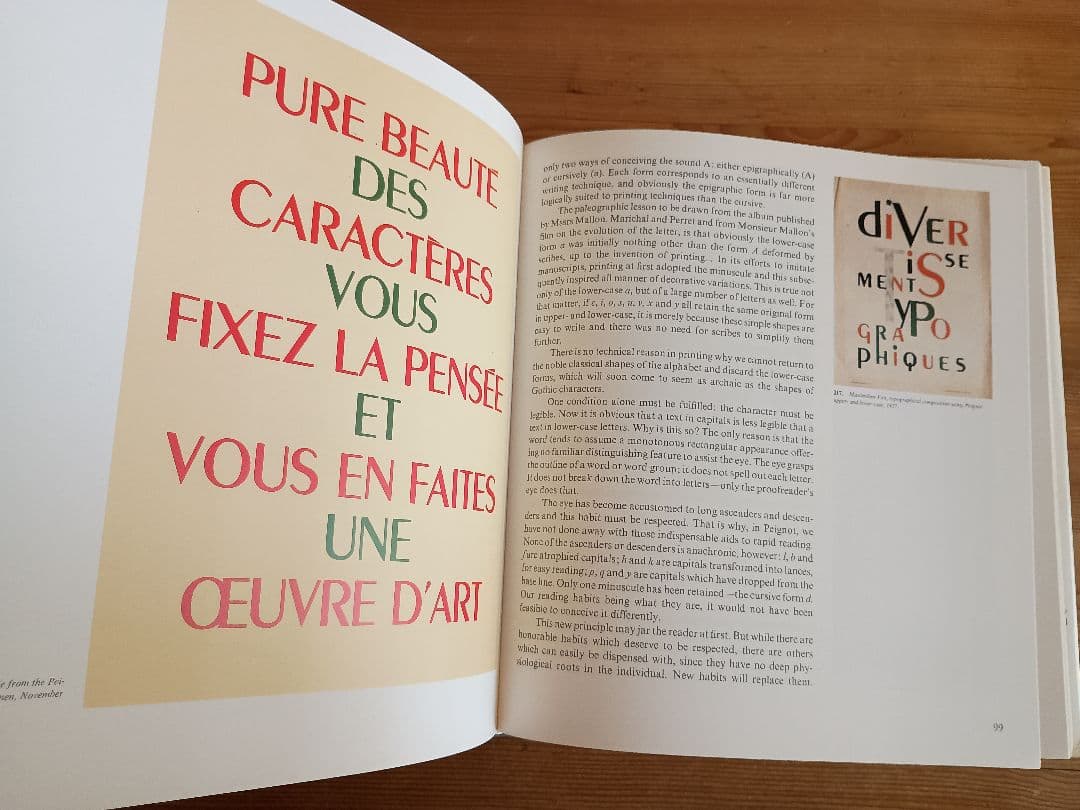 PURE BEAUTE
DES
CARACTÈRES
VOUS
FIXEZ LA PENSÉE
ET
VOUS EN FAITES
UNE
ŒUVRE D'ART
e from the Pei-
men, November
only two ways of conceiving the sound A: either epigraphically (A)
or cursively (a). Each form corresponds to an essentially different
writing technique, and obviously the epigraphic form is far more
logically suited to printing techniques than the cursive.
The paleographic lesson to be drawn from the album published
by Messrs Mallon, Marichal and Perrat and from Monsieur Mallon's
film on the evolution of the letter, is that obviously the lower-case
form a was initially nothing other than the form A deformed by
scribes, up to the invention of printing... In its efforts to imitate
manuscripts, printing at first adopted the minuscule and this subse-
quently inspired all manner of decorative variations. This is true not
only of the lower-case a, but of a large number of letters as well. For
that matter, if c, i, o, s, u, v, x and y all retain the same original form
in upper- and lower-case, it is merely because these simple shapes are
easy to write and there was no need for scribes to simplify them
further.
There is no technical reason in printing why we cannot return to
the noble classical shapes of the alphabet and discard the lower-case
forms, which will soon come to seem as archaic as the shapes of
Gothic characters.
One condition alone must be fulfilled: the character must be
legible. Now it is obvious that a text in capitals is less legible that a
text in lower-case letters. Why is this so? The only reason is that the
word tends to assume a monotonous rectangular appearance offer-
ing no familiar distinguishing feature to assist the eye. The eye grasps
the outline of a word or word group; it does not spell out each letter.
It does not break down the word into letters—only the proofreader's
eye does that.
The eye has become accustomed to long ascenders and descen-
ders and this habit must be respected. That is why, in Peignot, we
have not done away with those indispensable aids to rapid reading.
None of the ascenders or descenders is anachronic, however: l, b and
f are atrophied capitals; h and k are capitals transformed into lances,
for easy reading; p, q and y are capitals which have dropped from the
base line. Only one minuscule has been retained—the cursive form d.
Our reading habits being what they are, it would not have been
feasible to conceive it differently.
This new principle may jar the reader at first. But while there are
honorable habits which deserve to be respected, there are others
which can easily be dispensed with, since they have no deep phy-
siological roots in the individual. New habits will replace them.
diVER
TiSSE
MENTS
TYPO
GRA
phiQUES
217. Maximilien Vox, typographical composition using Peignot
upper- and lower-case, 1937.
99